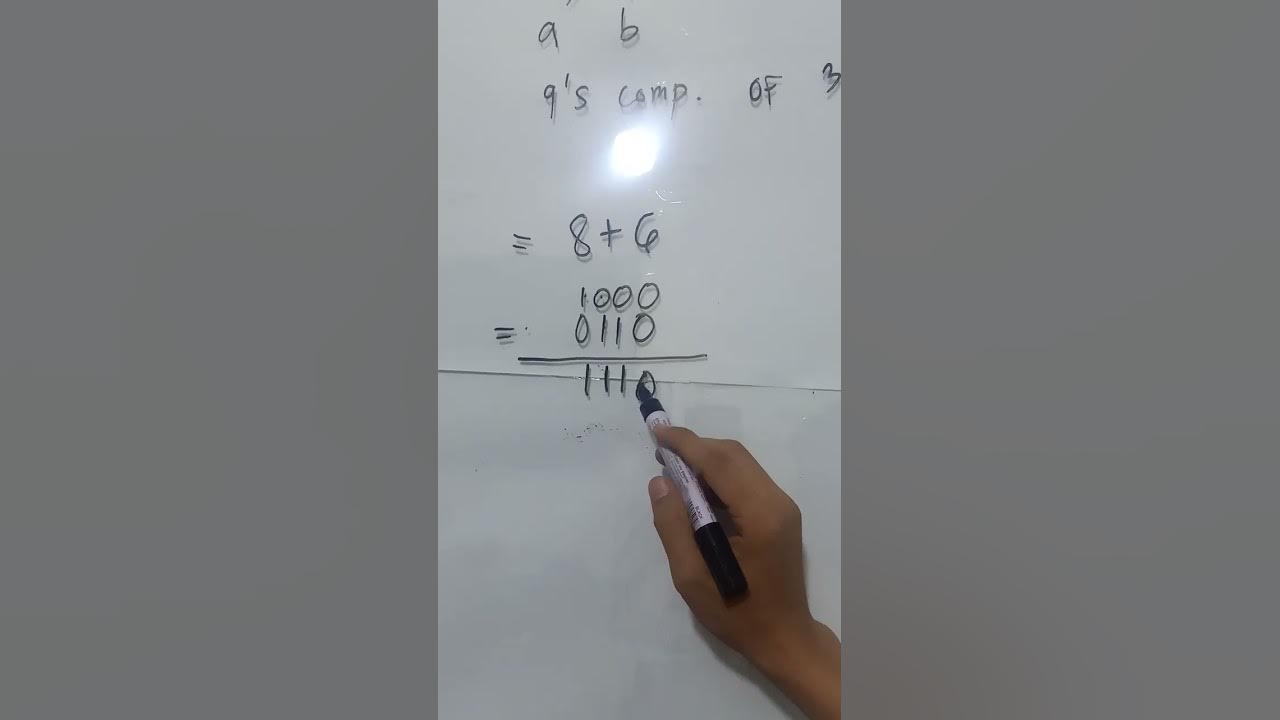 a b
9's comp. OF 3
= 8+6
1000
= 0110
1110